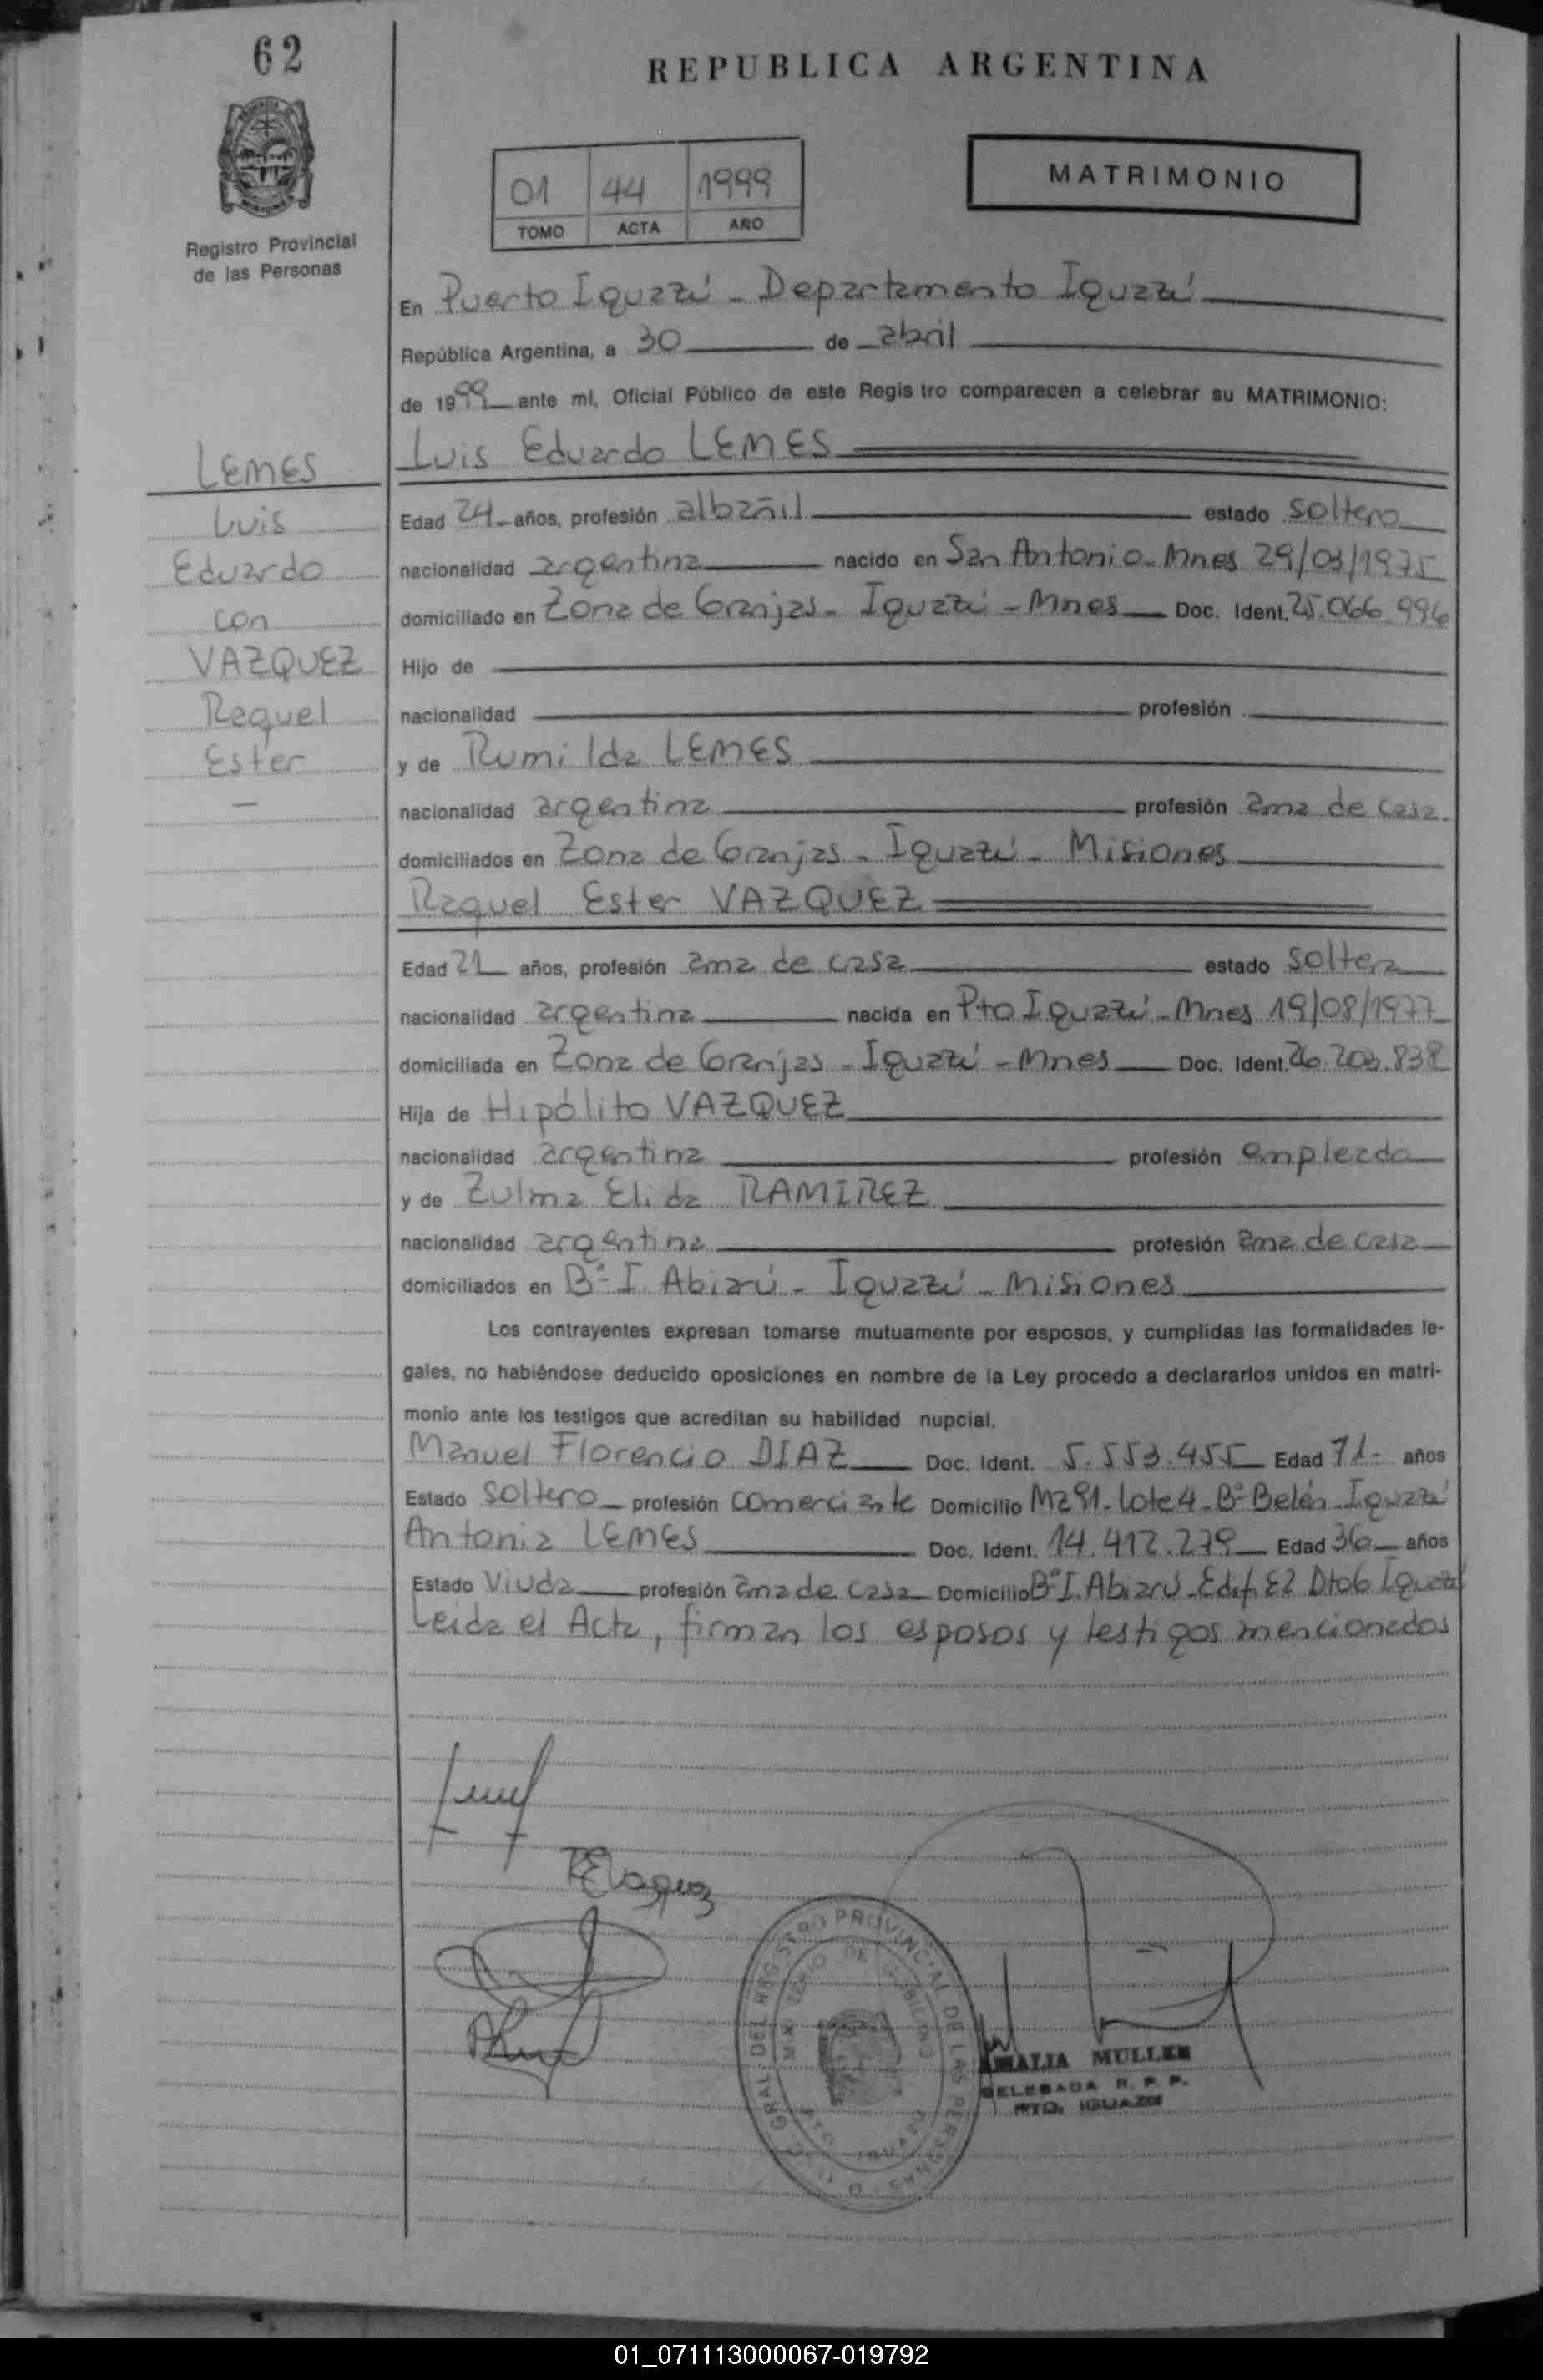 62
REPUBLICA ARGENTINA
Registro Provincial
de las Personas
01 44 1999
TOMO ACTA AÑO
MATRIMONIO
En Puerto Iguazú - Departamento Iguazú
República Argentina, a 30 de abril
de 1999 ante mi, Oficial Público de este Regis tro comparecen a celebrar su MATRIMONIO:
LEMES
Luis
Eduardo
con
VAZQUEZ
Raquel
Ester
Luis Eduardo LEMES
Edad 24 años, profesión albañil estado soltero
nacionalidad argentina nacido en San Antonio - Mnes 29/03/1975
domiciliado en Zona de Granjas - Iguazú - Mnes Doc. Ident. 25.066.996
Hijo de
nacionalidad profesión
y de Rumilda LEMES
nacionalidad argentina profesión ama de casa
domiciliados en Zona de Granjas - Iguazú - Misiones
Raquel Ester VAZQUEZ
Edad 21 años, profesión ama de casa estado soltera
nacionalidad argentina nacida en Pto Iguazú - Mnes 19/08/1977
domiciliada en Zona de Granjas - Iguazú - Mnes Doc. Ident. 26.203.838
Hija de Hipólito VAZQUEZ
nacionalidad argentina profesión empleado
y de Zulma Elida RAMIREZ
nacionalidad argentina profesión ama de casa
domiciliados en Bº I. Abiarú - Iguazú - Misiones
Los contrayentes expresan tomarse mutuamente por esposos, y cumplidas las formalidades le-
gales, no habiéndose deducido oposiciones en nombre de la Ley procedo a declararlos unidos en matri-
monio ante los testigos que acreditan su habilidad nupcial.
Manuel Florencio DIAZ Doc. Ident. 5.553.455 Edad 71- años
Estado soltero profesión comerciante Domicilio Mz 91 - Lote 4 - Bº Belén - Iguazú
Antonia LEMES Doc. Ident. 14.412.279 Edad 36 años
Estado Viuda profesión ama de casa Domicilio Bº I. Abiarú - Edif. E2 Dto 6 Iguazú
Leida el Acta, firman los esposos y testigos mencionados
REVazquez
GRAL. DEL REGISTRO PROVINCIAL DE LAS PERSONAS
MINISTERIO DE GOBIERNO
AMALIA MULLER
DELEGADA R. P. P.
PTO. IGUAZU
01_071113000067-019792